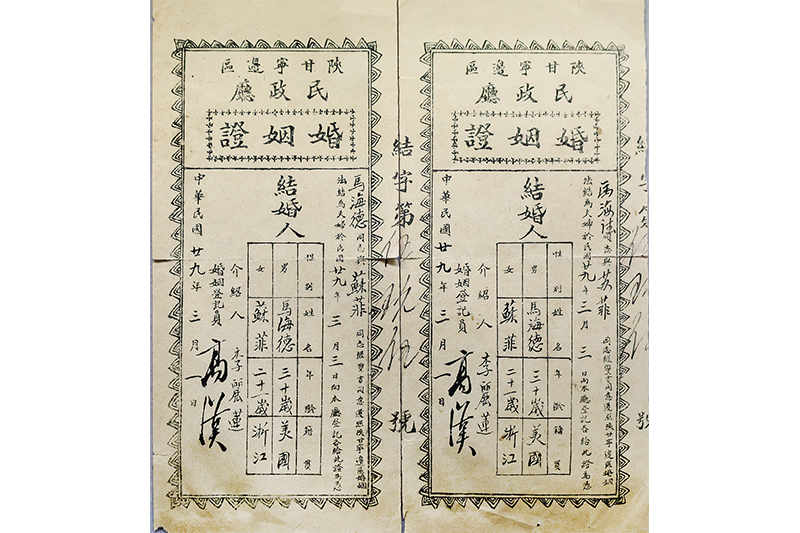 陝甘寧邊區
民政廳
婚姻證
馬海德同志與苏菲同志經雙方同意遵照陝甘寧邊區婚姻
法結為夫婦於民國廿九年三月三日向本廳登記各給此證為憑
結婚人
性別 姓名 年齡 籍貫
男 馬海德 三十歲 美國
女 蘇菲 二十歲 浙江
介紹人 李麗蓮
婚姻登記員 高漢
中華民國廿九年三月 日
結字第 號
陝甘寧邊區
民政廳
婚姻證
馬海德同志與蘇菲同志經雙方同意遵照陝甘寧邊區婚姻
法結為夫婦於民國廿九年三月三日向本廳登記各給此證為憑
結婚人
性別 姓名 年齡 籍貫
男 馬海德 三十歲 美國
女 蘇菲 二十一歲 浙江
介紹人 李麗蓮
婚姻登記員 高漢
中華民國廿九年三月 日